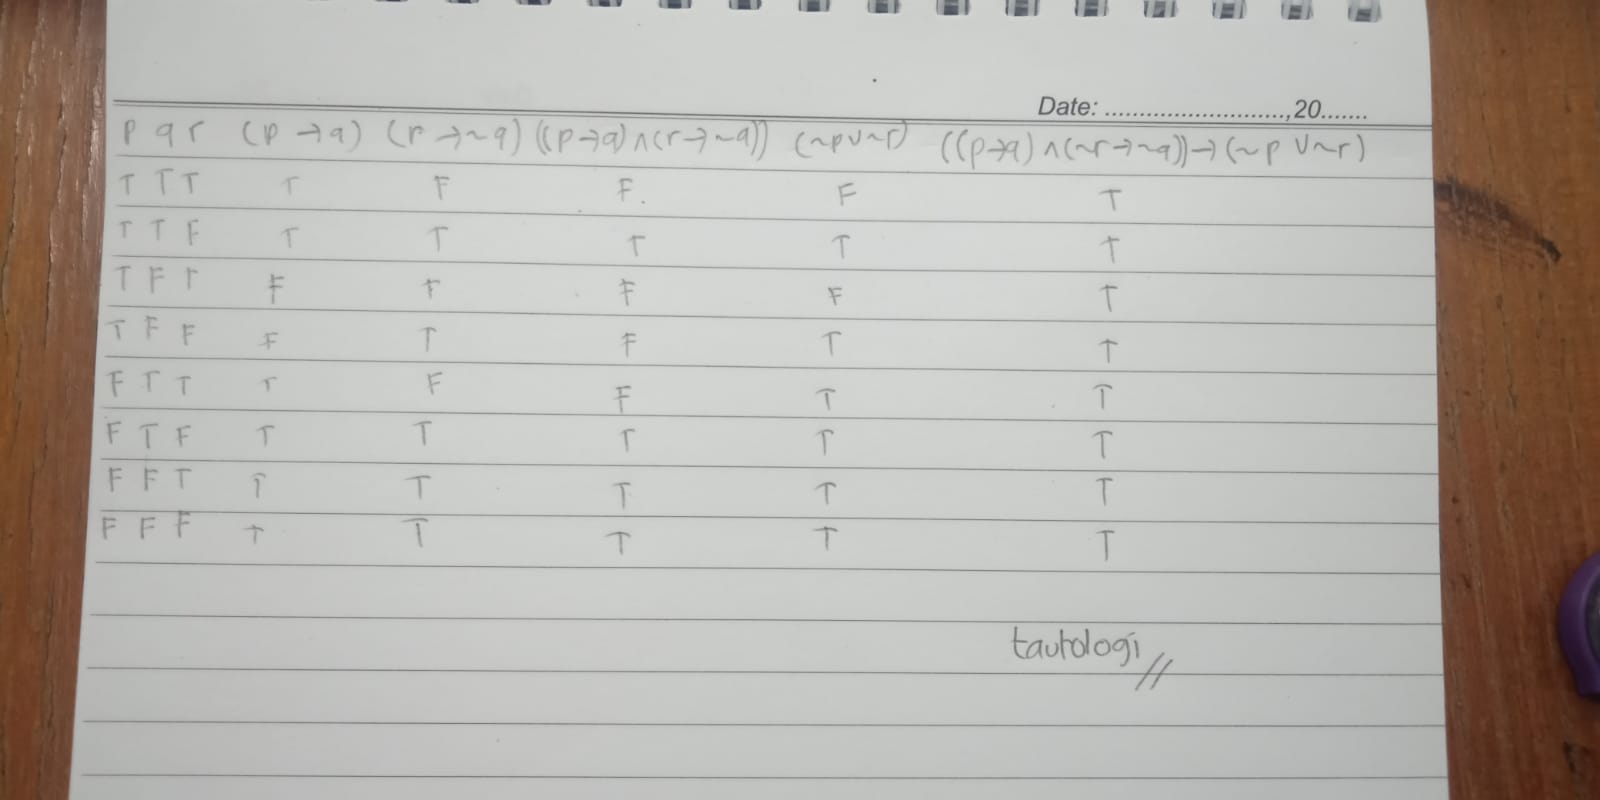 Date: ..........................,20.......
p q r (p → q) (r → ~q) ((p→q) ∧ (r→~q)) (~p∨~r) ((p→q) ∧ (~r→~q)) → (~p ∨ ~r)
T T T T F F. F T
T T F T T T T T
T F T F T F F T
T F F F T F T T
F T T T F F T T
F T F T T T T T
F F T T T T T T
F F F T T T T T
tautologi //